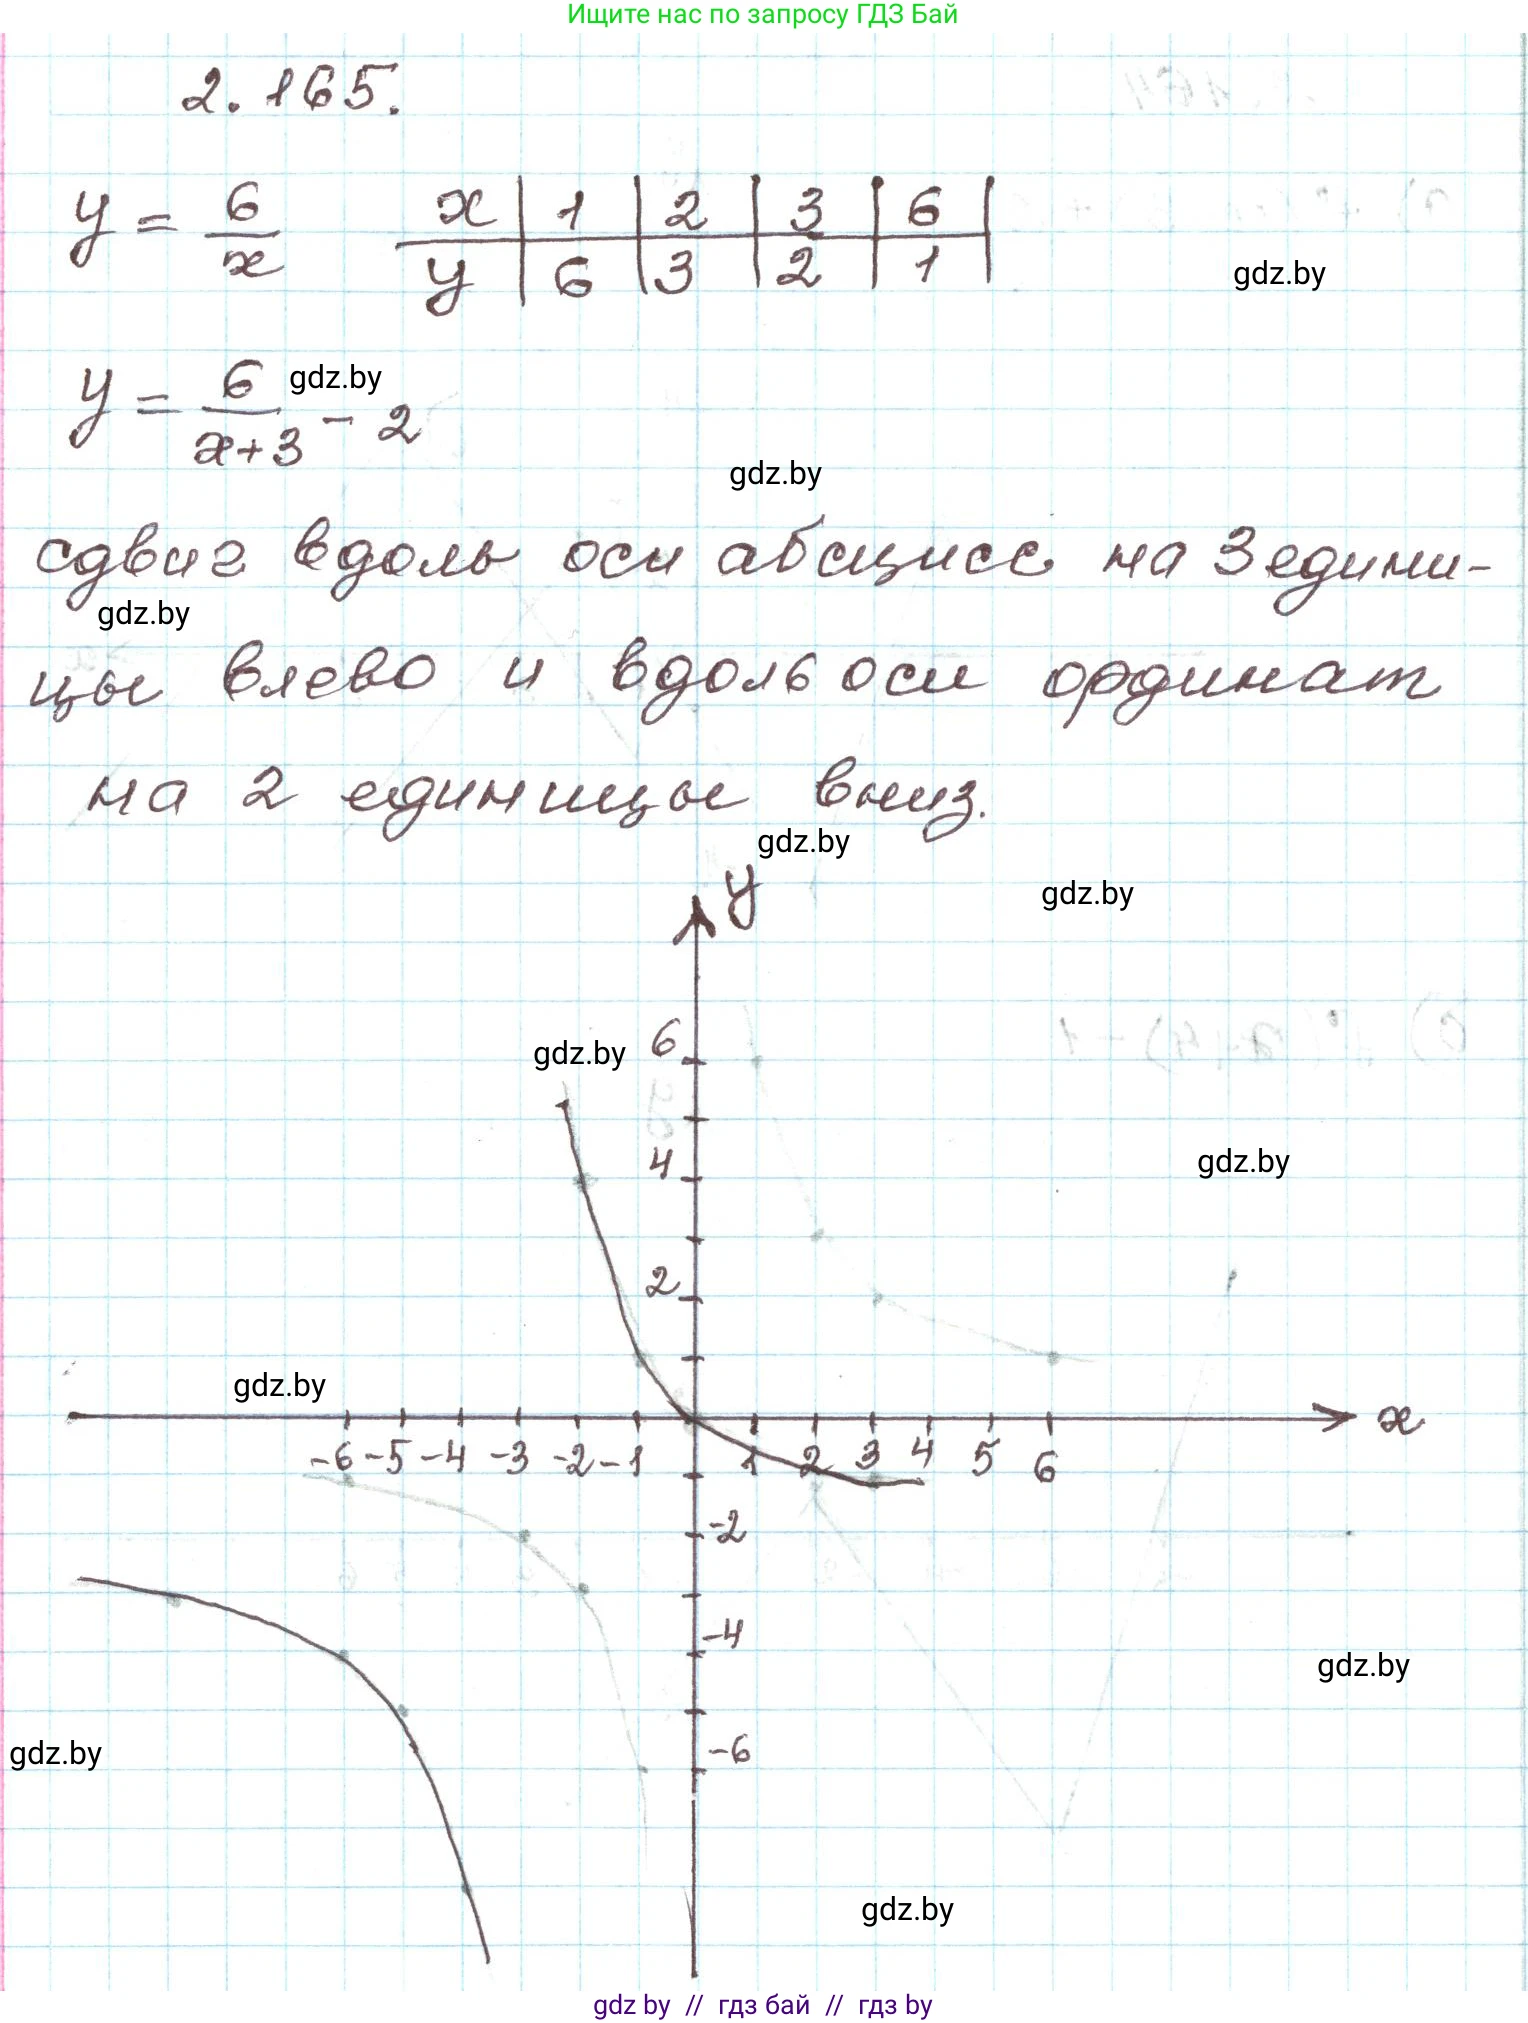 Ищите нас по запросу ГДЗ Бай
2.165.
y = 6/x
x | 1 | 2 | 3 | 6
y | 6 | 3 | 2 | 1
gdz.by
y = 6/(x+3) - 2
gdz.by
gdz.by
сдвиг вдоль оси абсцисс на 3 едини-
gdz.by
цы влево и вдоль оси ординат
на 2 единицы вниз.
gdz.by
y
gdz.by
gdz.by
6
4
gdz.by
2
gdz.by
x
-6 -5 -4 -3 -2 -1 1 2 3 4 5 6
-2
-4
gdz.by
gdz.by
-6
gdz.by
gdz by // гдз бай // гдз by